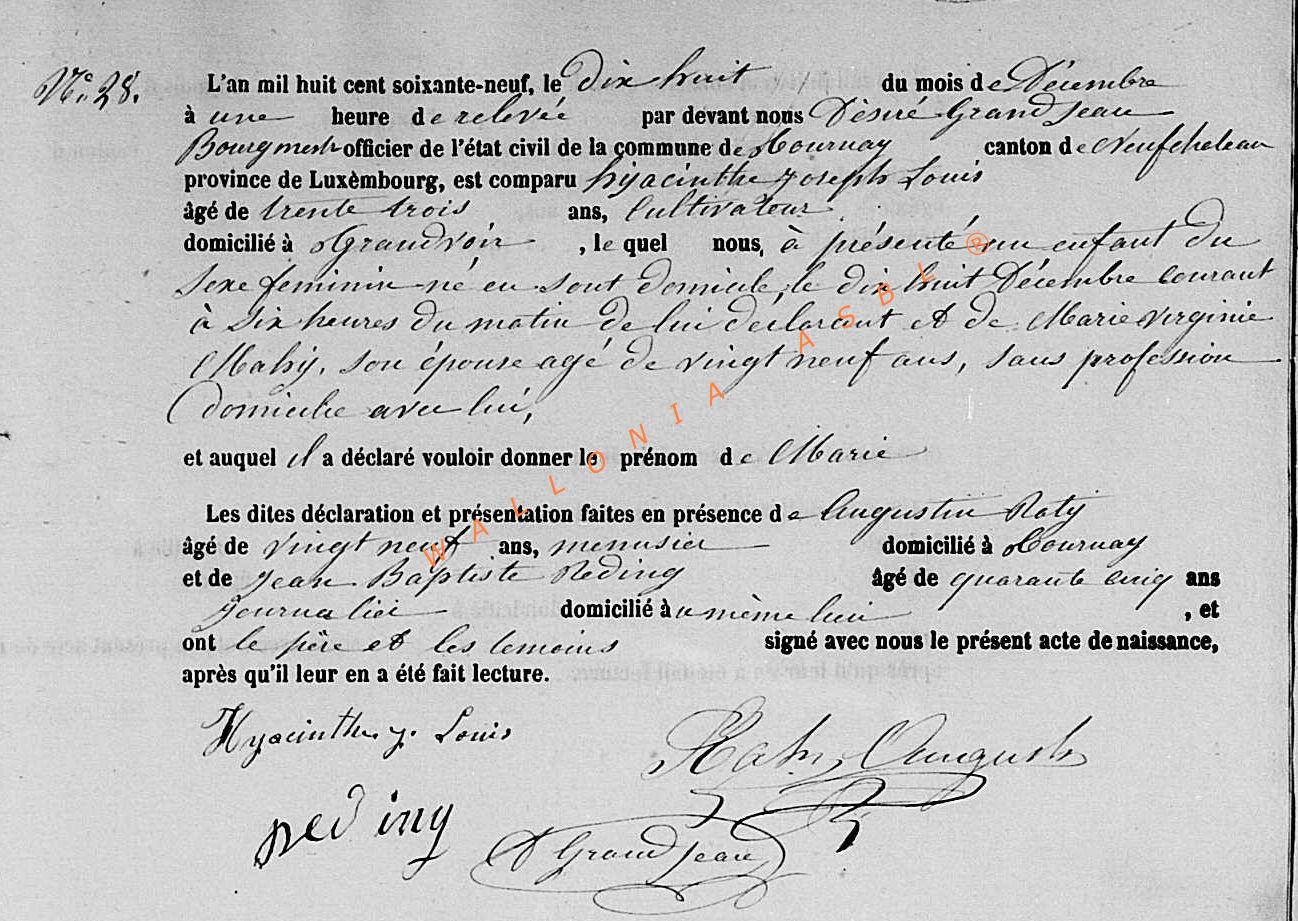 N° 28. L'an mil huit cent soixante-neuf, le dix huit du mois de Décembre
à une heure de relevée par devant nous Désiré GrandJean
Bourgmestr officier de l'état civil de la commune de Tournay canton de Neufchateau
province de Luxèmbourg, est comparu hyacinthe Joseph Louis
âgé de trente trois ans, Cultivateur
domicilié à Grandvoir, le quel nous, à présenté un enfant du
sexe feminin né en sont domicile, le dix huit Décembre courant
à six heures du matin de lui declarant et de Marie Virginie
Mahy, son épouse agé de vingt neuf ans, sans profession
domicilie avec lui,
et auquel il a déclaré vouloir donner le prénom de Marie
Les dites déclaration et présentation faites en présence de Augustin Roty
âgé de vingt neuf ans, menusier domicilié à Tournay
et de Jean Baptiste Reding âgé de quarante cinq ans
Journalier domicilié au même lieu, et
ont le père et les temoins signé avec nous le présent acte de naissance,
après qu'il leur en a été fait lecture.
Hyacinthe j. Louis
August
reding
D GrandJean
WALLONIA ASBL ®